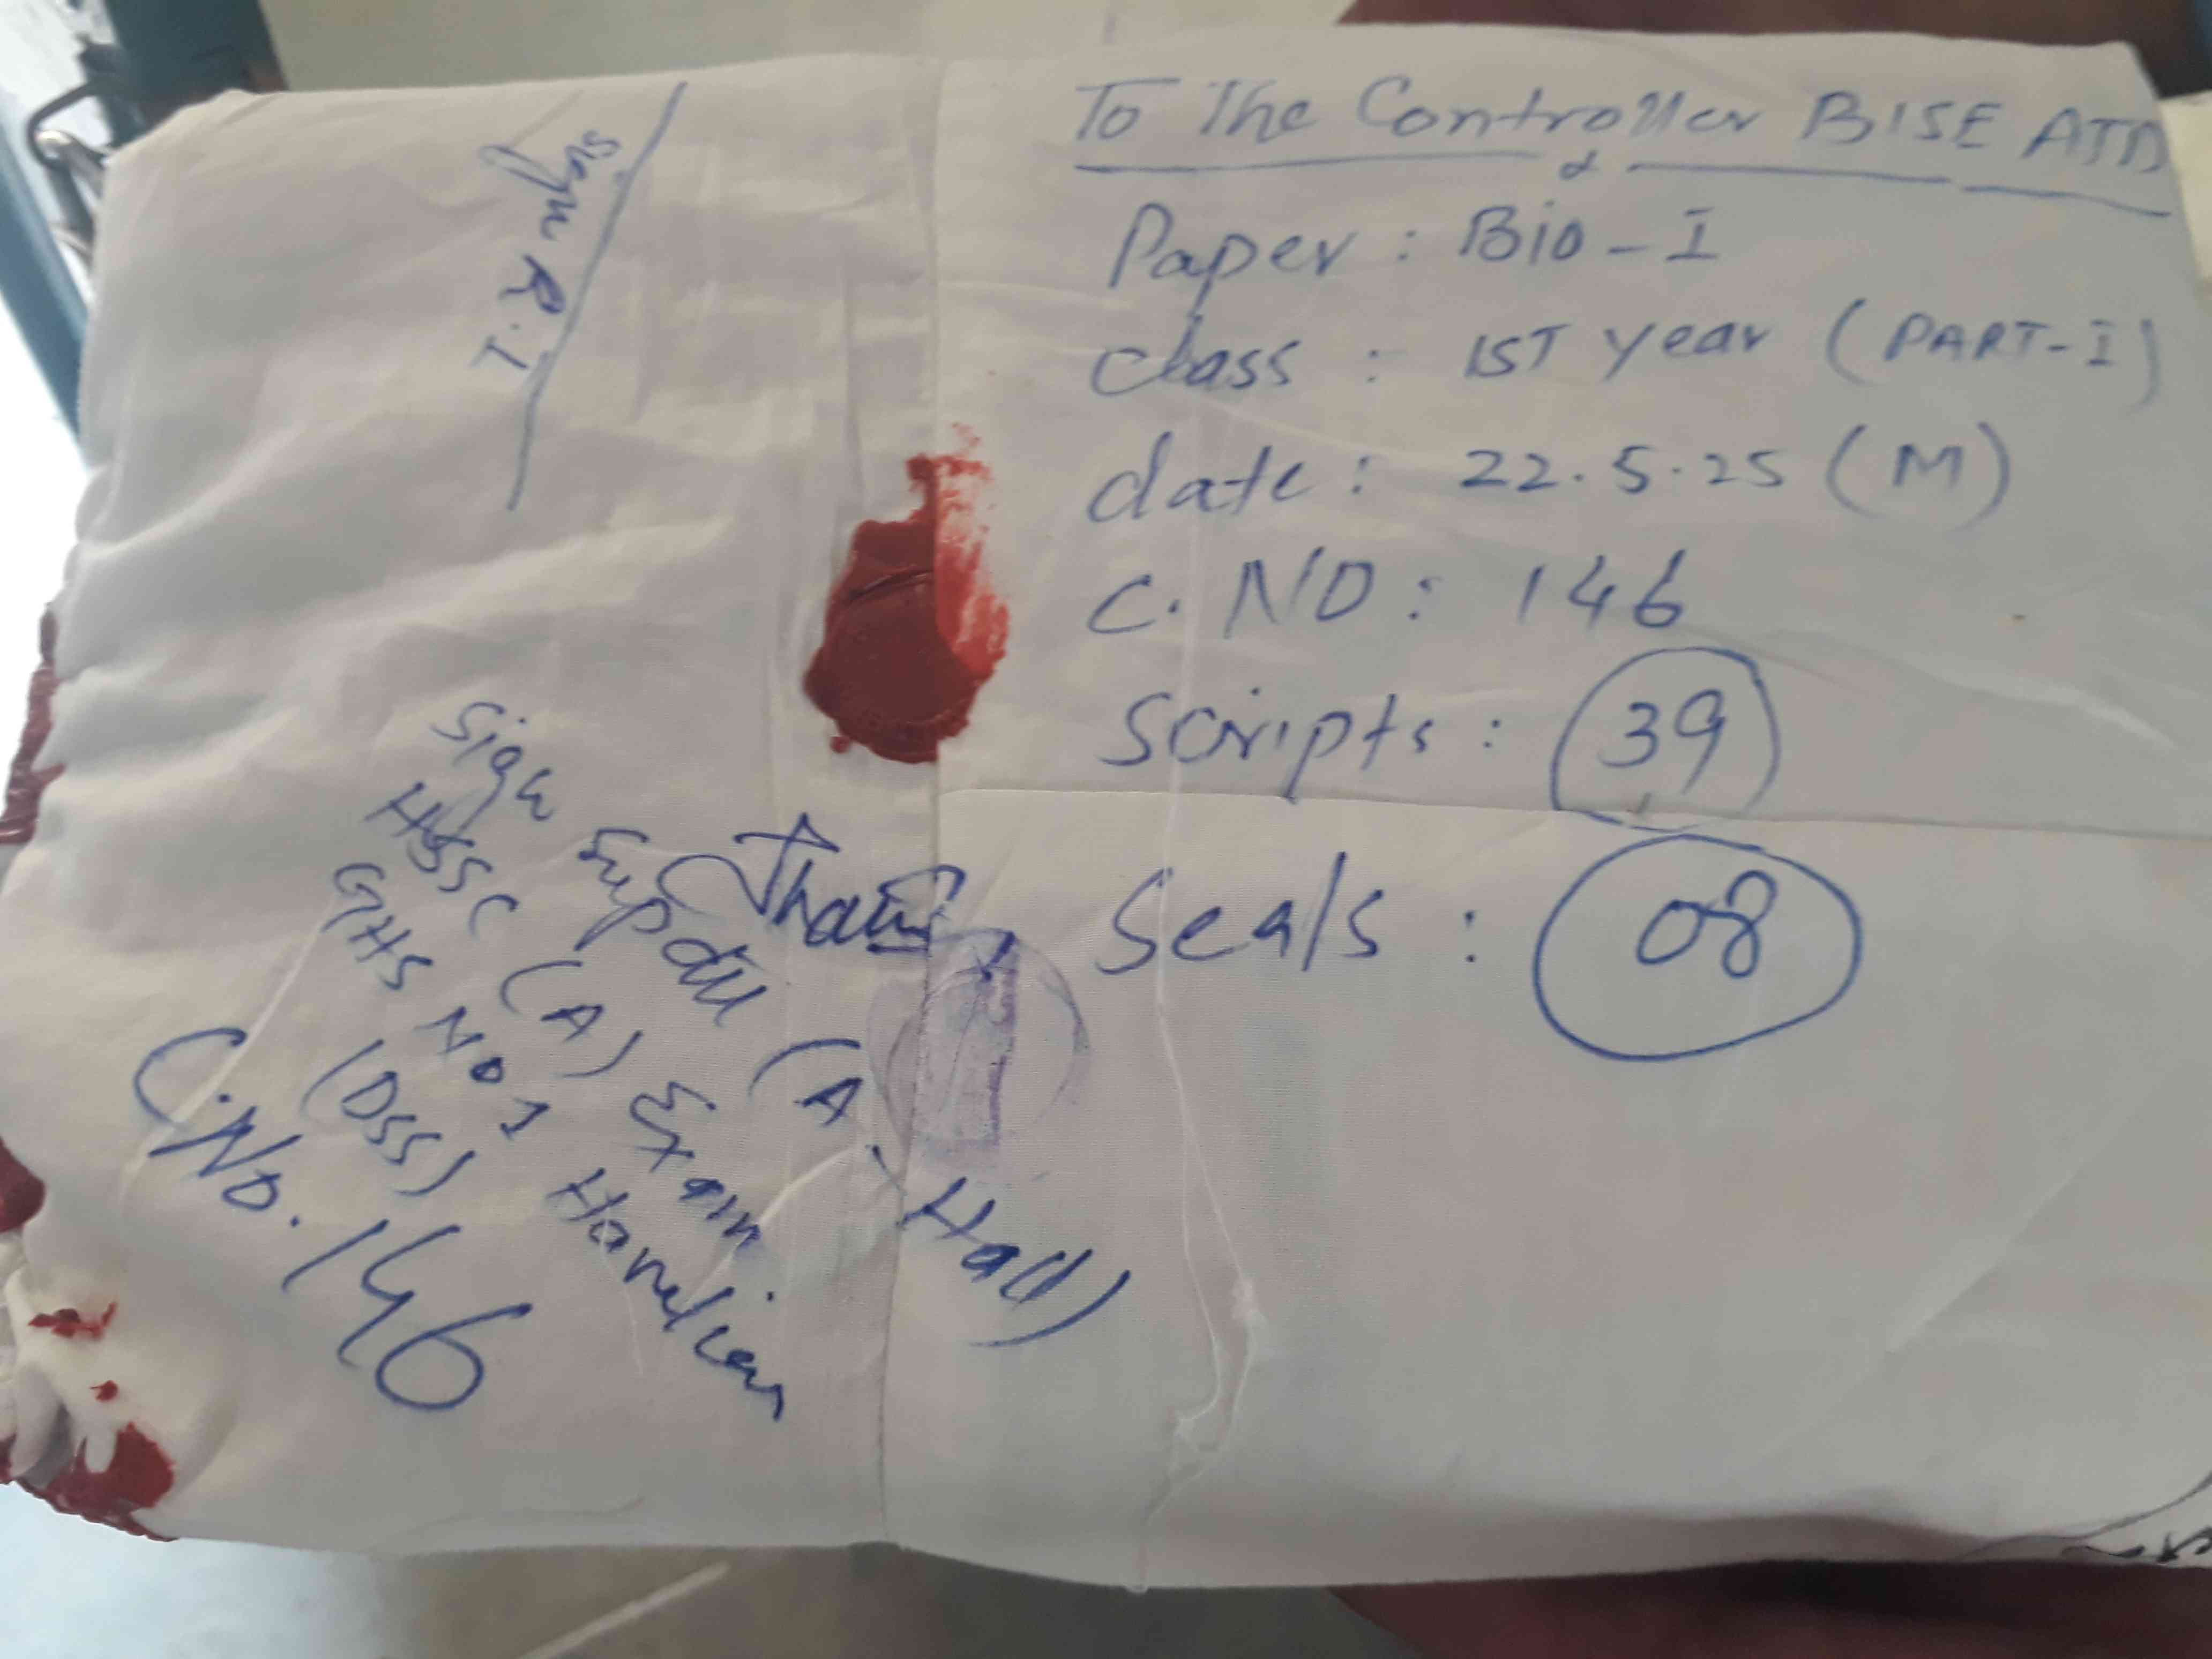 To The Controller BISE ATD
Paper : Bio - I
class : 1ST year (PART-I)
date : 22.5.25 (M)
C. NO : 146
Scripts : 39
Seals : 08
Sign R.I
Sign Supdtt (A. Hall)
HSSC (A) Exam
GHS No 1 Havelian
(DSS)
C.No. 146